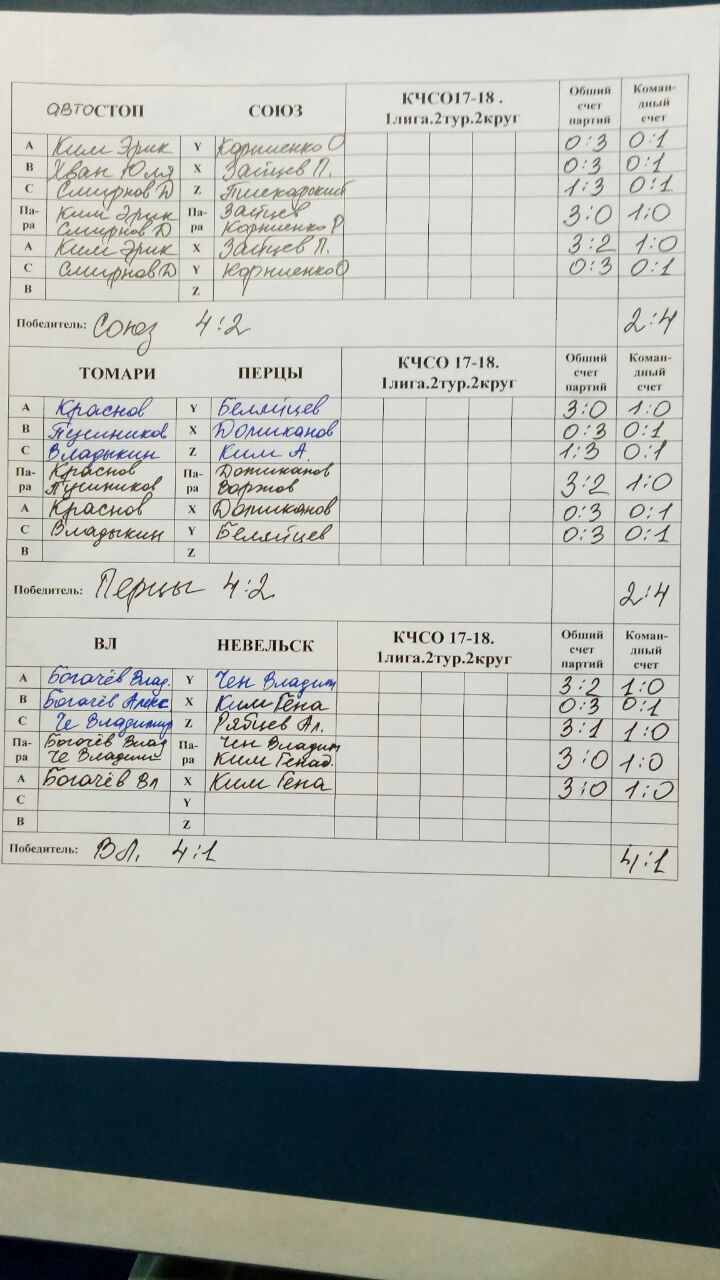 АВТОСТОП СОЮЗ КЧСО17-18 . 1лига.2тур.2круг Общий счет партий Коман-дный счет
A Ким Эрик Y Корниенко О 0:3 0:1
B Хван Юля X Зайцев П. 0:3 0:1
C Смирнов Д Z 1:3 0:1
Па-ра Ким Эрик Па-ра Зайцев 3:0 1:0
Смирнов Д Корниенко
A Ким Эрик X Зайцев П. 3:2 1:0
C Смирнов Д Y Корниенко О 0:3 0:1
B Z
Победитель: Союз 4:2 2:4
ТОМАРИ ПЕРЦЫ КЧСО 17-18. 1лига.2тур.2круг Общий счет партий Коман-дный счет
A Краснов Y Беляйцев 3:0 1:0
B Пушников X Дошканов 0:3 0:1
C Владыкин Z Ким А. 1:3 0:1
Па-ра Краснов Па-ра 3:2 1:0
Пушников
A Краснов X 0:3 0:1
C Владыкин Y Беляйцев 0:3 0:1
B Z
Победитель: Перцы 4:2 2:4
ВЛ НЕВЕЛЬСК КЧСО 17-18. 1лига.2тур.2круг Общий счет партий Коман-дный счет
A Богачёв Влад. Y Чен Владим 3:2 1:0
B Богачёв Алекс X Ким Гена 0:3 0:1
C Че Владимир Z Рябцев Ал. 3:1 1:0
Па-ра Богачёв Влад Па-ра Чен Владим 3:0 1:0
Че Владими Ким Генад.
A Богачёв Вл X Ким Гена 3:0 1:0
C Y
B Z
Победитель: ВЛ. 4:1 4:1